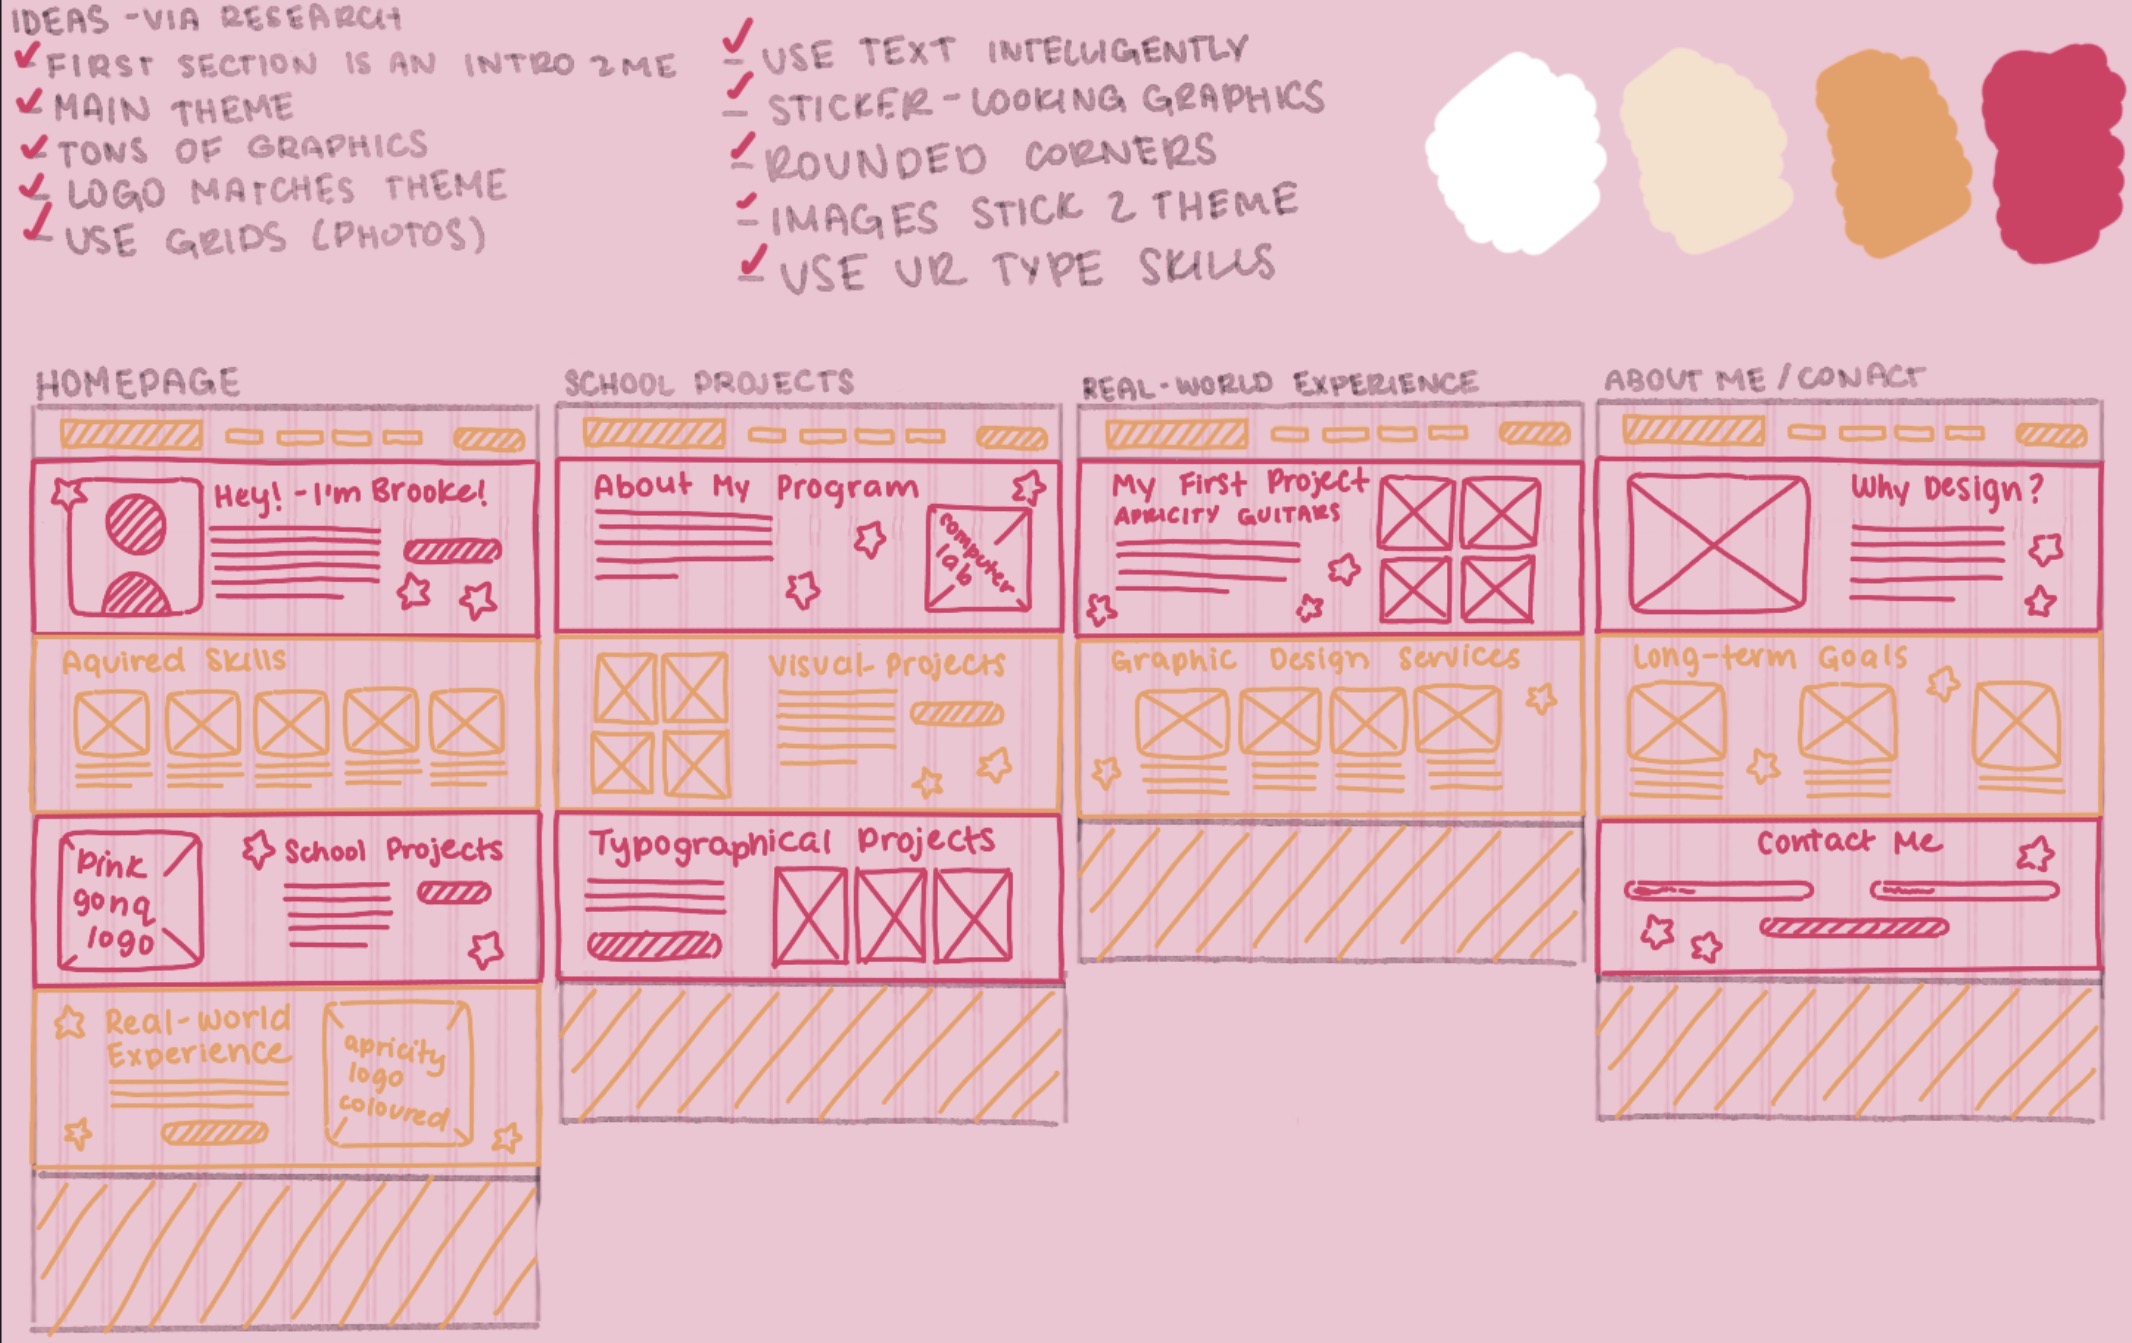 IDEAS - VIA RESEARCH
- FIRST SECTION IS AN INTRO 2 ME
- MAIN THEME
- TONS OF GRAPHICS
- LOGO MATCHES THEME
- USE GRIDS (PHOTOS)
- USE TEXT INTELLIGENTLY
- STICKER-LOOKING GRAPHICS
- ROUNDED CORNERS
- IMAGES STICK 2 THEME
- USE UR TYPE SKILLS
HOMEPAGE
Hey! - I'm Brooke!
Aquired Skills
pink
gonq
logo
School Projects
Real-world
Experience
apricity
logo
coloured
SCHOOL PROJECTS
About My Program
computer
lab
Visual-Projects
Typographical Projects
REAL-WORLD EXPERIENCE
My First Project
APRICITY GUITARS
Graphic Design Services
ABOUT ME / CONACT
Why Design?
Long-term Goals
Contact Me